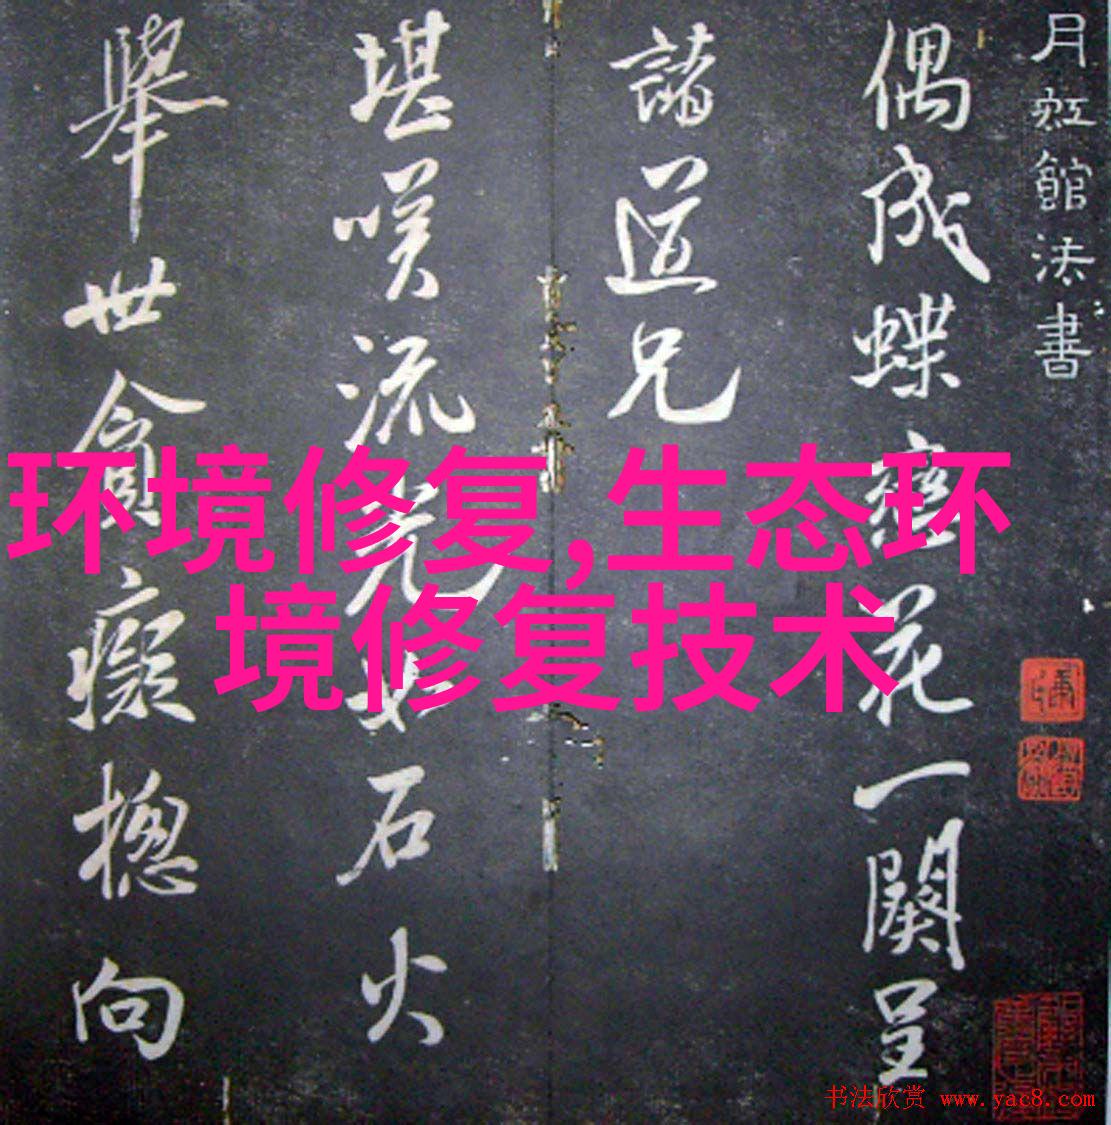 月虹館法書
偶成蝶戀花一闋呈
諸道兄
堪嘆流光如石火
舉世貪癡摠向
环境修复,生态环
境修复技术
书法欣赏 www.yac8.com